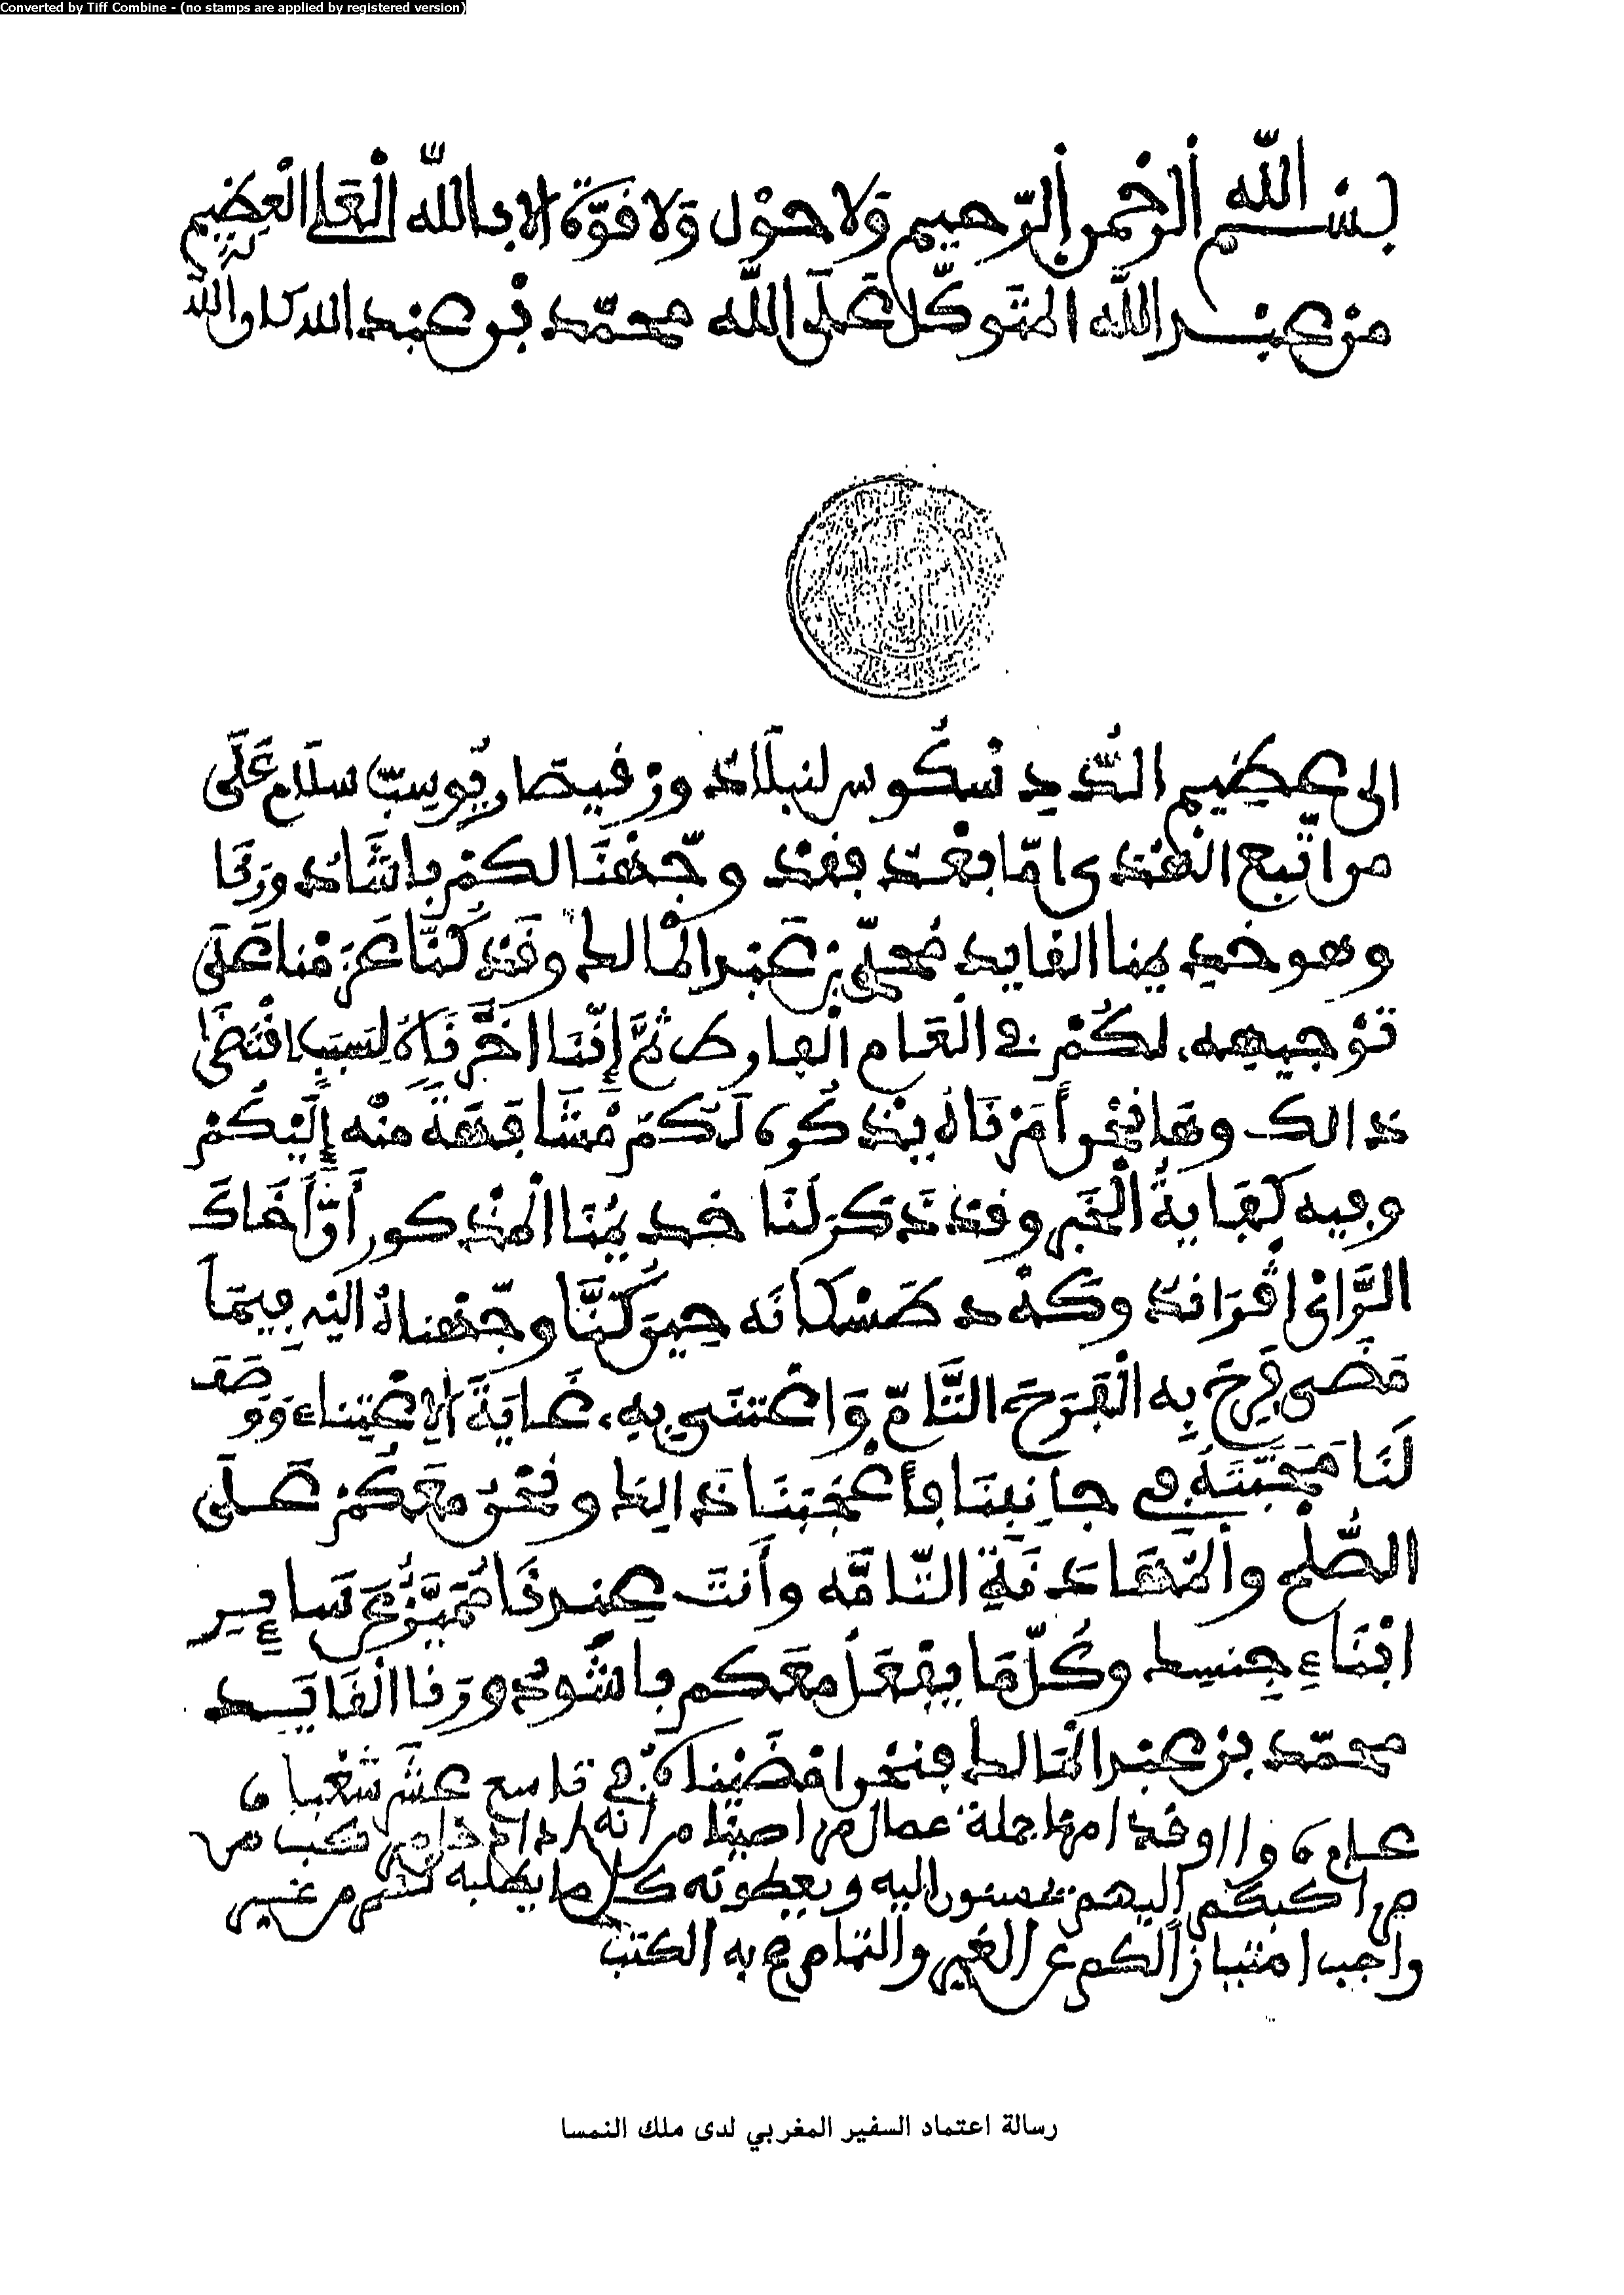 Converted by Tiff Combine - (no stamps are applied by registered version)
بسم الله الرحمن الرحيم ولا حول ولا قوة الا بالله العلى العظيم
من عبد الله المتوكل على الله محمد بن عبد الله كان الله له
الى عظيم الدد سكوس لنبلاد ورفيصار يوسب سلام على
من اتبع الهدى اما بعد فقد وجهنا لكم باشادورنا
وهو خديمنا القايد محمد بن عبد المالك وقد كنا عزمنا على
توجيهه لكم في العام الفارط ثم إننا اخرناه لسبب اقتضى
ذالك وها نحن أمرناه يذكر لكم مشافهة منه إليكم
وفيه كفاية الخبر وقد ذكر لنا خديمنا المذكور أن أخاك
الراني اقراندك وكه د طسكانه حين كنا وجهناه اليه فيما
مضى فرح به الفرح التام واعتنى به غاية الاعتناء ووصف
لنا محبته في جانبنا فأعجبنا ذالك ونحن معكم على
الصلح والمهادنة التامه وأنت عندنا مميز عن ساير
ابناء جنسك وكل ما يفعل معكم باشدورنا القايد
محمد بن عبد المالك فنحن امضيناه في تاسع عشر شعبان
عام وقد امرنا جملة عمال مراصينا انه اذا مركب من
مراكبكم اليهم يحسنون اليه ويعطونه كل ما يطلبه منهم من غير
واجب امتيازا لكم عن الغير والتمام به الكتب
رسالة اعتماد السفير المغربي لدى ملك النمسا